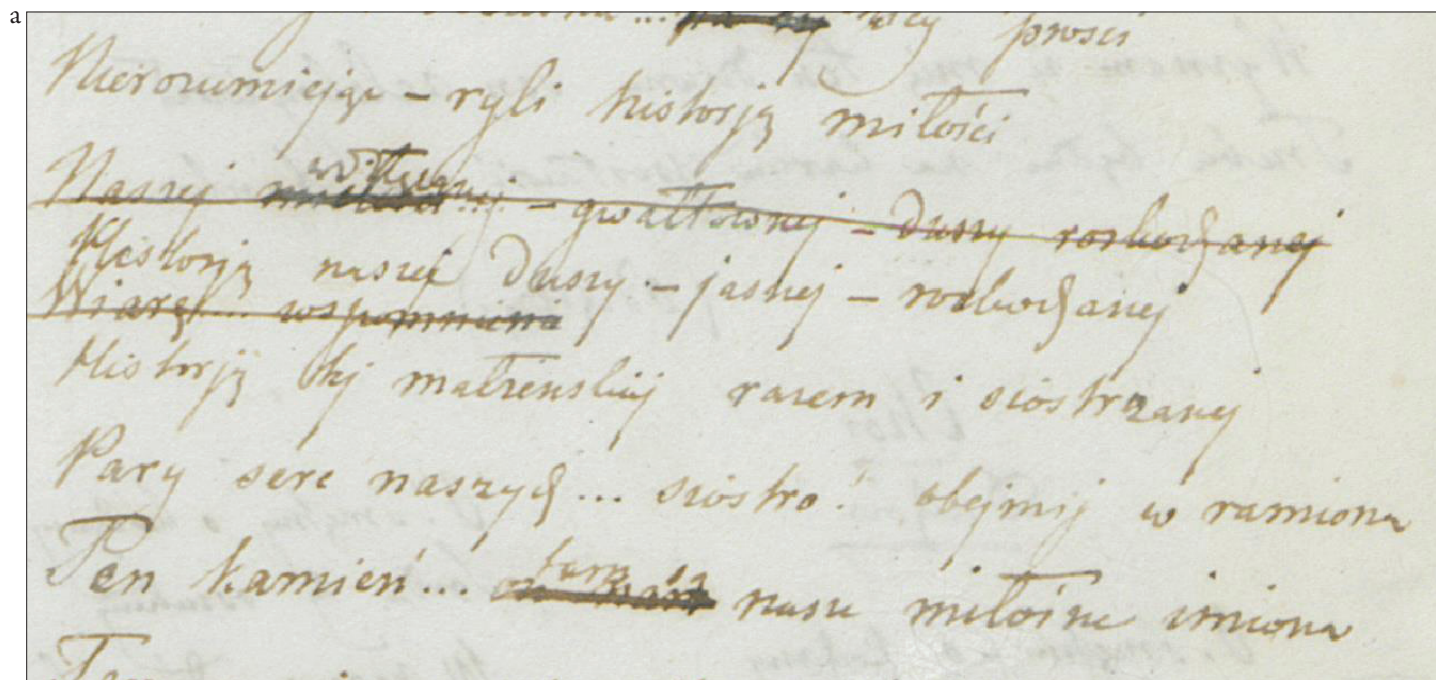 a
prości
Nierozumiejąc – ryli historją miłości
Naszej – gwałtownej – duszy rozkochanej
Historją naszej duszy – jasnej – rozkochanej
Wiarę... wspomnienia
Historją tej małżenskiej razem i siostrzanej
Pary serc naszych... siostro! obejmij w ramiona
Ten kamień... tam są nasze miłośne imiona